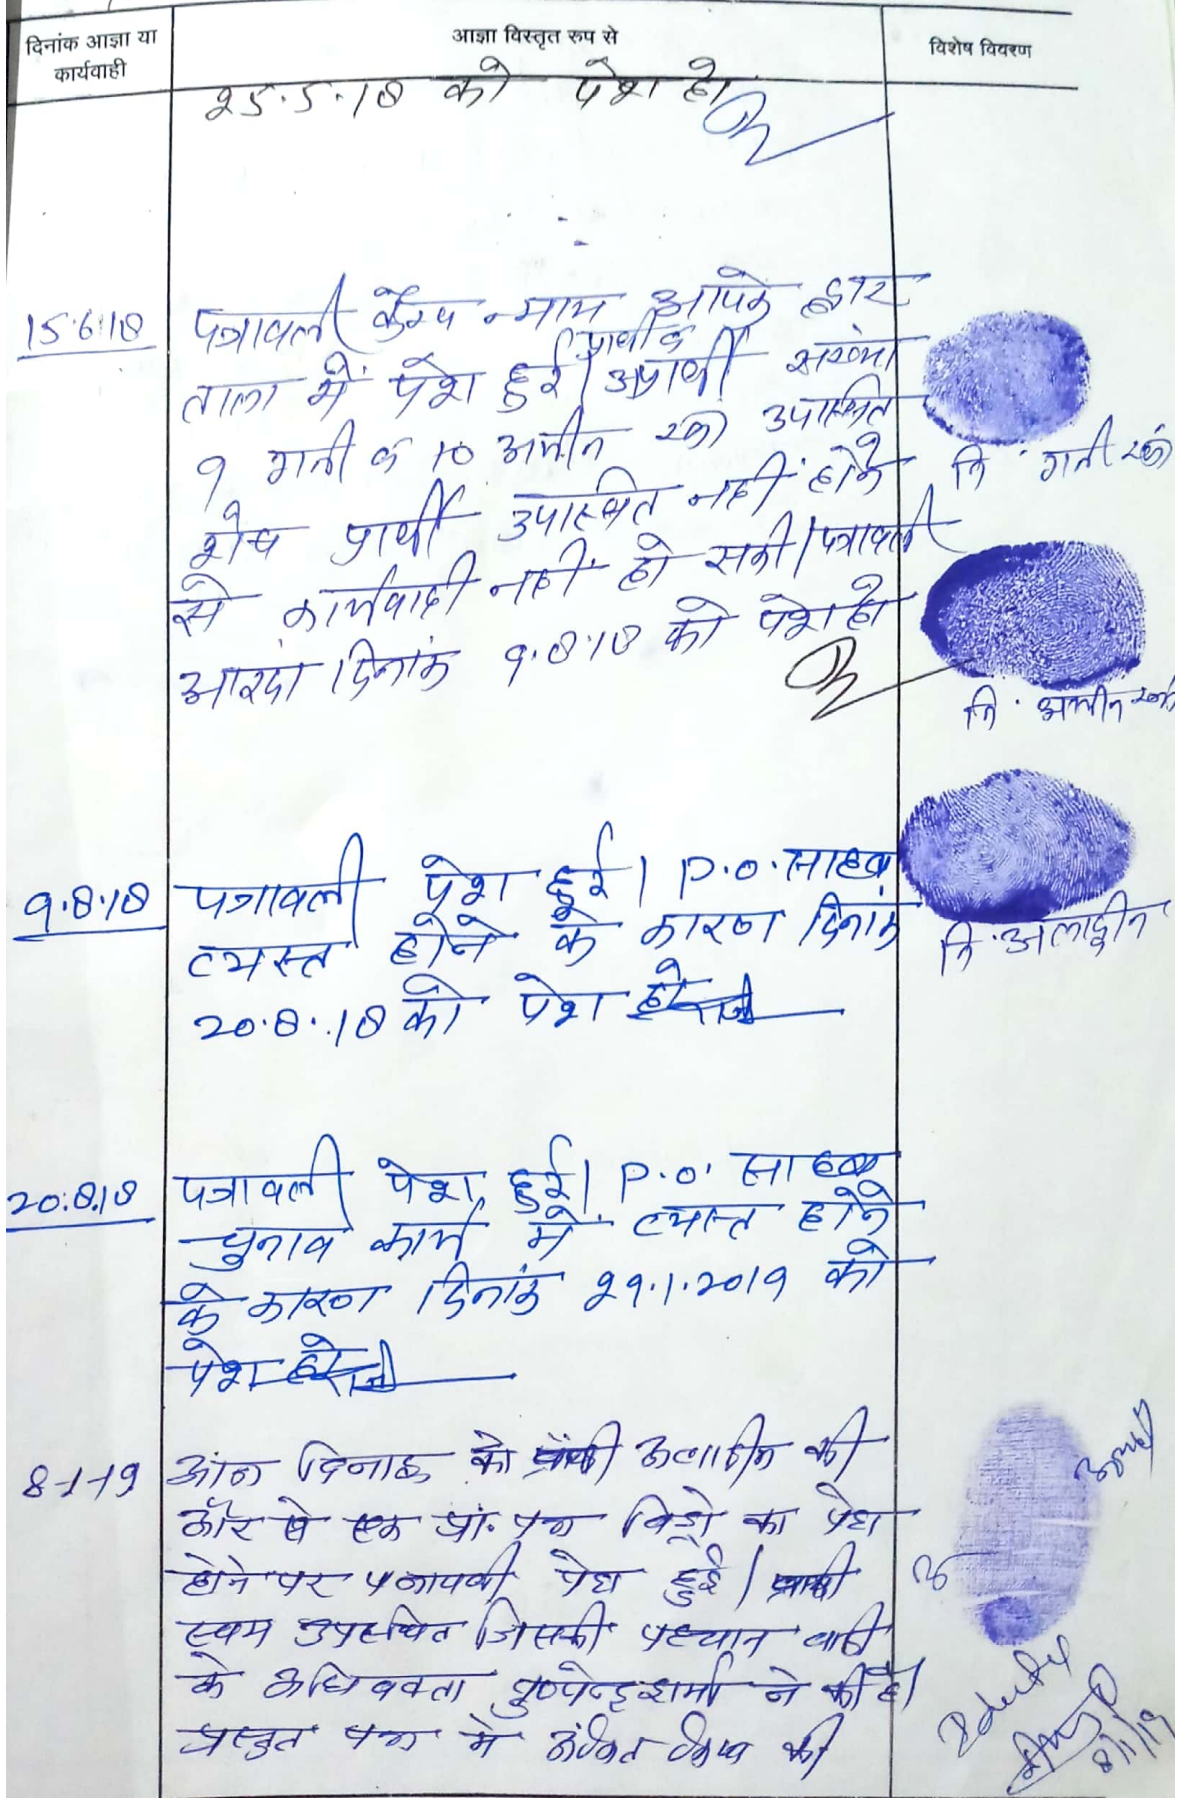 दिनांक आज्ञा या
कार्यवाही
आज्ञा विस्तृत रुप से
विशेष विवरण
25.5.18 को पेश हो
15.6.18
पत्रावली कैम्प आपके द्वार
प्रार्थी व
ताला में पेश हुई। अप्रार्थी संख्या
9 गनी व 10 अमीन खां उपस्थित
शेष प्रार्थी उपस्थित नहीं होने
से कार्यवाही नहीं हो सकी। पत्रावली
आइंदा दिनांक 9.8.18 को पेश हो
नि. गनी खां
नि. अमीन खां
9.8.18
पत्रावली पेश हुई। P.O. साहब
व्यस्त होने के कारण दिनांक
20.8.18 को पेश हो
नि. अलाद्दीन
20.8.18
पत्रावली पेश हुई। P.O. साहब
चुनाव कार्य में व्यस्त होने
के कारण दिनांक 29.1.2019 को
पेश हो
8-1-19
आज दिनांक को अलादीन की
ओर से एक प्रा. पत्र विड्रो का पेश
होने पर पत्रावली पेश हुई।
स्वयं उपस्थित जिसकी पहचान वादी
के अधिवक्ता शर्मा ने की है।
प्रस्तुत पत्र में अंकित की
8/1/19